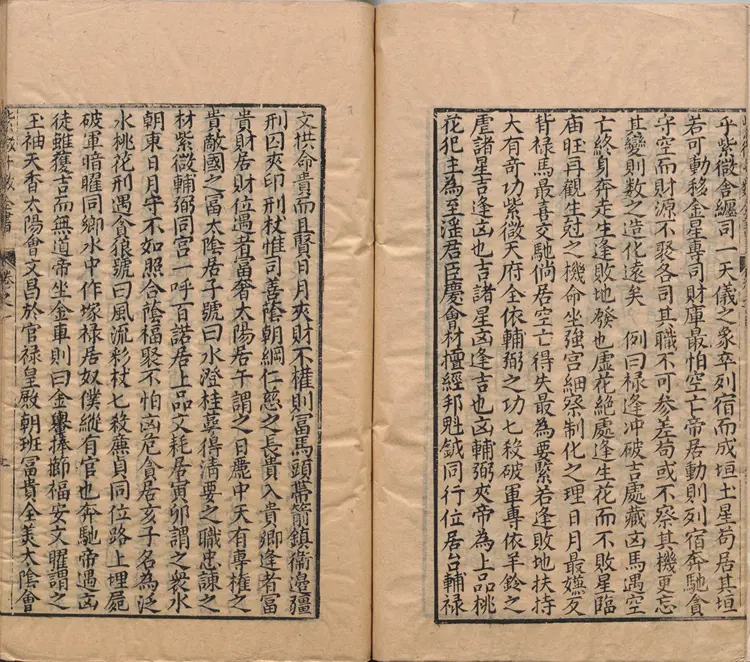 乎紫微舍纏司一天儀之象卒列宿而成垣土星苟居其垣
若可動移金星專司財庫最怕空亡帝居動則列宿奔馳貪
守空而財源不聚各司其職不可參差苟或不察其機更忘
其變則數之造化遠矣　例曰祿逢冲破吉處藏凶馬遇空
亡終身奔走生逢敗地發也虛花絕處逢生花而不敗星臨
庙旺再觀生尅之機命坐强宮細察制化之理日月最嫌反
背祿馬最喜交馳倘居空亡得失最為要緊若逢敗地扶持
大有奇功紫微天府全依輔弼之功七殺破軍專依羊鈴之
虐諸星吉逢凶也吉諸星凶逢吉也凶輔弼夾帝為上品桃
花犯主為至淫君臣慶會材擅經邦魁鉞同行位居台輔祿
文拱命貴而且賢日月夾財不權則冨馬頭帶箭鎮衞邊疆
刑囚夾印刑杖惟司善蔭朝綱仁慈之長貴入貴鄉逢者冨
貴財居財位遇者富奢太陽居午謂之日麗中天有專權之
貴敵國之冨太陰居子號曰水澄桂萼得清要之職忠諫之
材紫微輔弼同宮一呼百諾居上品文耗居寅卯謂之衆水
朝東日月守不如照合蔭福聚不怕凶危貪居亥子名為泛
水桃花刑遇貪狼號曰風流彩杖七殺廉貞同位路上埋屍
破軍暗曜同鄉水中作塚祿居奴僕縱有官也奔馳帝遇凶
徒雖獲吉而無道帝坐金車則曰金轝捧櫛福安文曜謂之
玉袖天香太陽會文昌於官祿皇殿朝班冨貴全美太陰會
紫微斗數全書　卷之一